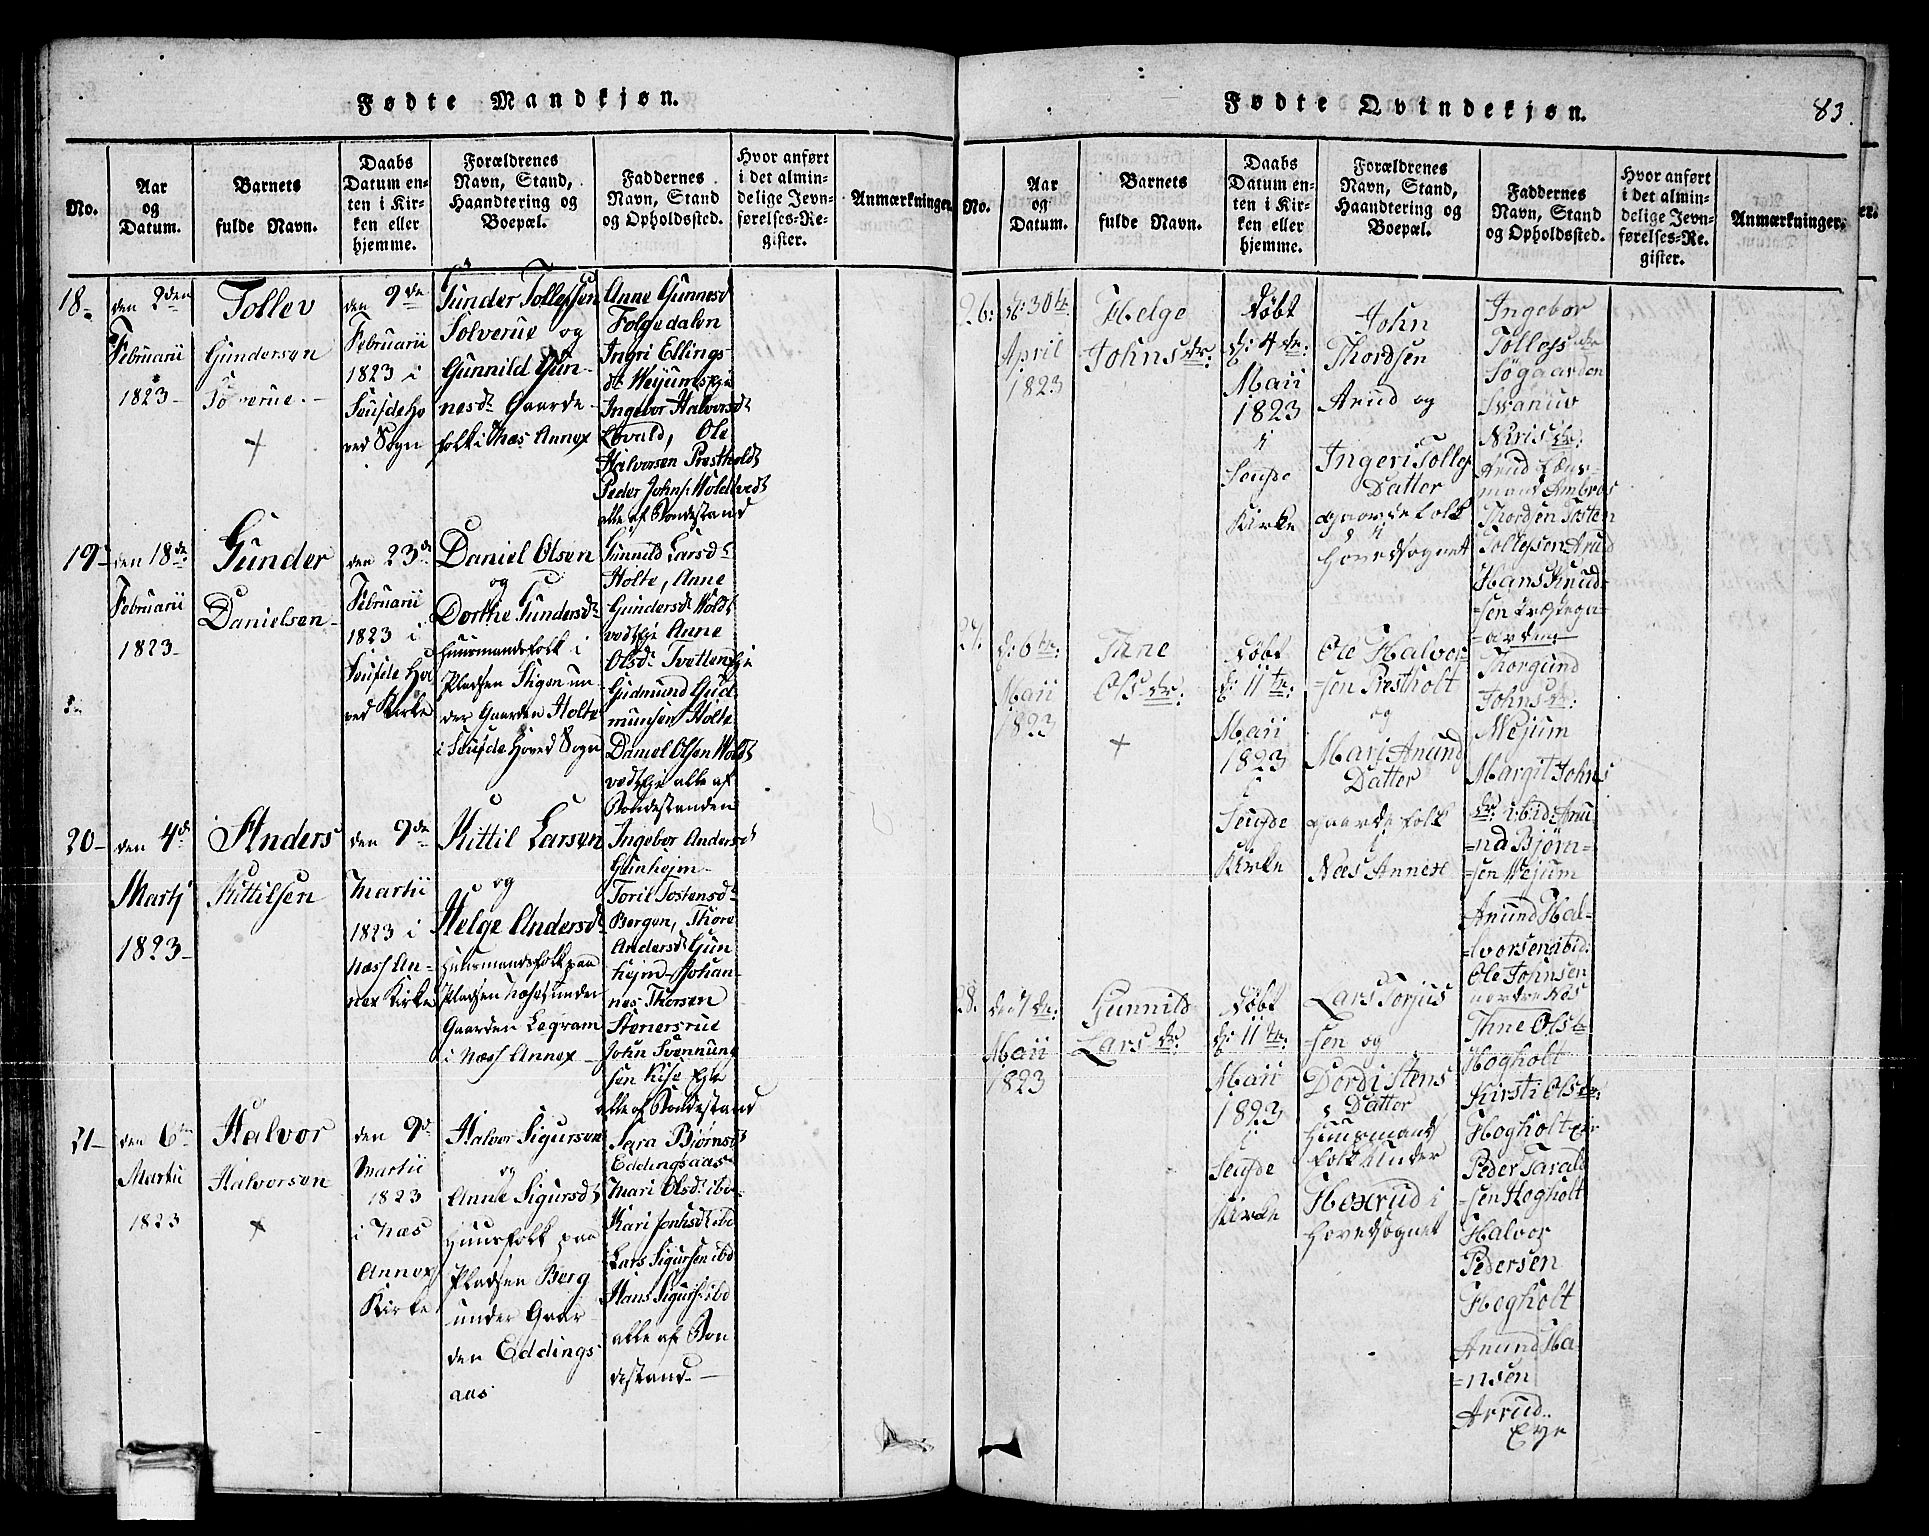 Fødte Mandkjøn.
No.
Aar
og
Datum.
Barnets
fulde Navn.
Daabs
Datum en-
ten i Kir-
ken eller
hjemme.
Forældrenes
Navn, Stand,
Haandtering og
Boepæl.
Faddernes
Navn, Stand
og Opholdssted.
Hvor anført
i det almin-
delige Jevn-
førelses-Re-
gister.
Anmærkninger.
18
den 2den
Februarii
1823
Tollev
Gundersen
den 9de
Februarii
1823 i
Sousde Ho
ved Sogn
Gunder Tollefsen
Solverue og
Gunnild Gun-
nesdt Gaarde-
folk i Næs Annex
Anne Gunnesd
Folgedalen
Ingri Ellings
dt
Ingebor Halvorsdt
Lovald, Ole
Halvorsen Prestholdt
Peder Johns
alle af Bondestand
19
den 18de
Februarii
1823
Gunder
Danielsen
den 23de
Februarii
1823 i
Sousde Ho
ved Kirke
Daniel Olsen
og
Dorthe Gundersdt
Huusmandsfolk i
Pladsen Stigen un-
der Gaarden Holte
i Sousde Hoved Sogn
Gunnild Larsdt
Holte, Anne
Gundersdt Holdt
Anne
Olsdt
Gudmund Gud-
munsen Holte
Daniel Olsen Holdt
alle af
Bondestanden
20
den 4de
Martj
1823
Anders
Kittilsen
den 9de
Martii
1823 i
Næss An-
nex Kirke
Kittil Larsen
og
Helge Andersdt
Huusmandsfolk paa
Pladsen under
Gaarden Legram
i Næss Annex
Ingebor Andersdt
Gunhejm
Toril Tostensdt
Bergen, Thore
Andersdt Gun
hejm Johan-
nes Thorsen
Stenersrue
John Svennung
sen
alle af Bondestand
21
den 6te
Martii
1823
Halvor
Halvorsen
den 9de
Martii
1823
i Næs
Annex
Kirke
Halvor Sigursen
og
Anne Sigursdt
Huusfolk paa
Pladsen Berg
under Gaar-
den Eddings
aas
Sara Bjørnsdt
Eddingsaas
Mari Olsdt ibd
Kari
Lars Sigursen ibd
Hans Sigurs ibd
alle af Bon
destand
Fødte Qvindekjøn.
83.
No.
Aar
og
Datum.
Barnets
fulde Navn.
Daabs
Datum en-
ten i Kir-
ken eller
hjemme.
Forældrenes
Navn, Stand,
Haandtering og
Boepæl.
Faddernes
Navn, Stand
og Opholdssted.
Hvor anført
i det almin-
delige Jevn-
førelses-Re-
gister.
Anmærkninger.
26:
d: 30te
April
1823
Helge
Johns dr:
Døbt
d: 4de:
Maii
1823
i
Seusde
Kirke
John
Thordsen
Arud og
Ingeri Tollefs
Datter
gaardefolk
i
Hovedsognet
Ingebor
Tollefs dr
Søgaarden
Niris dr:
Arud Læns-
mand Ambros
Thordsen Tosten
Tollefsen Arud
Hans Knud-
-sen Præstega-
-arden
27.
d: 6te:
Maii
1823
Ols dr:
Døbt
d: 11te:
Maii
1823
i
Seusde
Kirke
Ole Halvor-
-sen Prestholt
og
Mari Anund
Datter
gaardefolk
i
Næs Annex
Thorgund
Johns dr:
Wejum
Margit Johns
dr: ibid: Anu-
=nd Bjørn-
-sen Wejum
Anund Hal-
-vorsen ibid:
Ole Johnsen
nordre Nes
28.
den 7de:
Maii
1823
Gunnild
Lars dr:
Døbt
d: 11te:
Maii
1823
i
Seusde
Kirke
Lars Torjus-
-sen og
Dordi Stens
Datter
Huusmands
folk under
Hexrud i
Hovedsognet
Ols dr
Hogholt
Kirsti Ols dr:
Hogholt eje
Peder Tarald-
-sen Hogholt
Halvor
Pedersen
Hogholt
Anund Ha-
=nsen
Arrud..
Eye